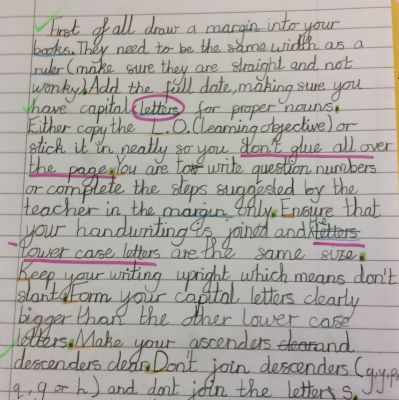 First of all draw a margin into your
books. They need to be the same width as a
ruler (make sure they are straight and not
wonky). Add the full date, making sure you
have capital letters for proper nouns.
Either copy the L.O. (learning objective) or
stick it in neatly so you don't glue all over
the page. You are to write question numbers
or complete the steps suggested by the
teacher in the margin only. Ensure that
your handwriting is joined and the letters
lower case letters are the same size.
Keep your writing upright which means don't
slant. Form your capital letters clearly
bigger than the other lower case
letters. Make your ascenders clear and
descenders clear. Don't join descenders (g,y,p,
q, g or h) and dont join the letters s.